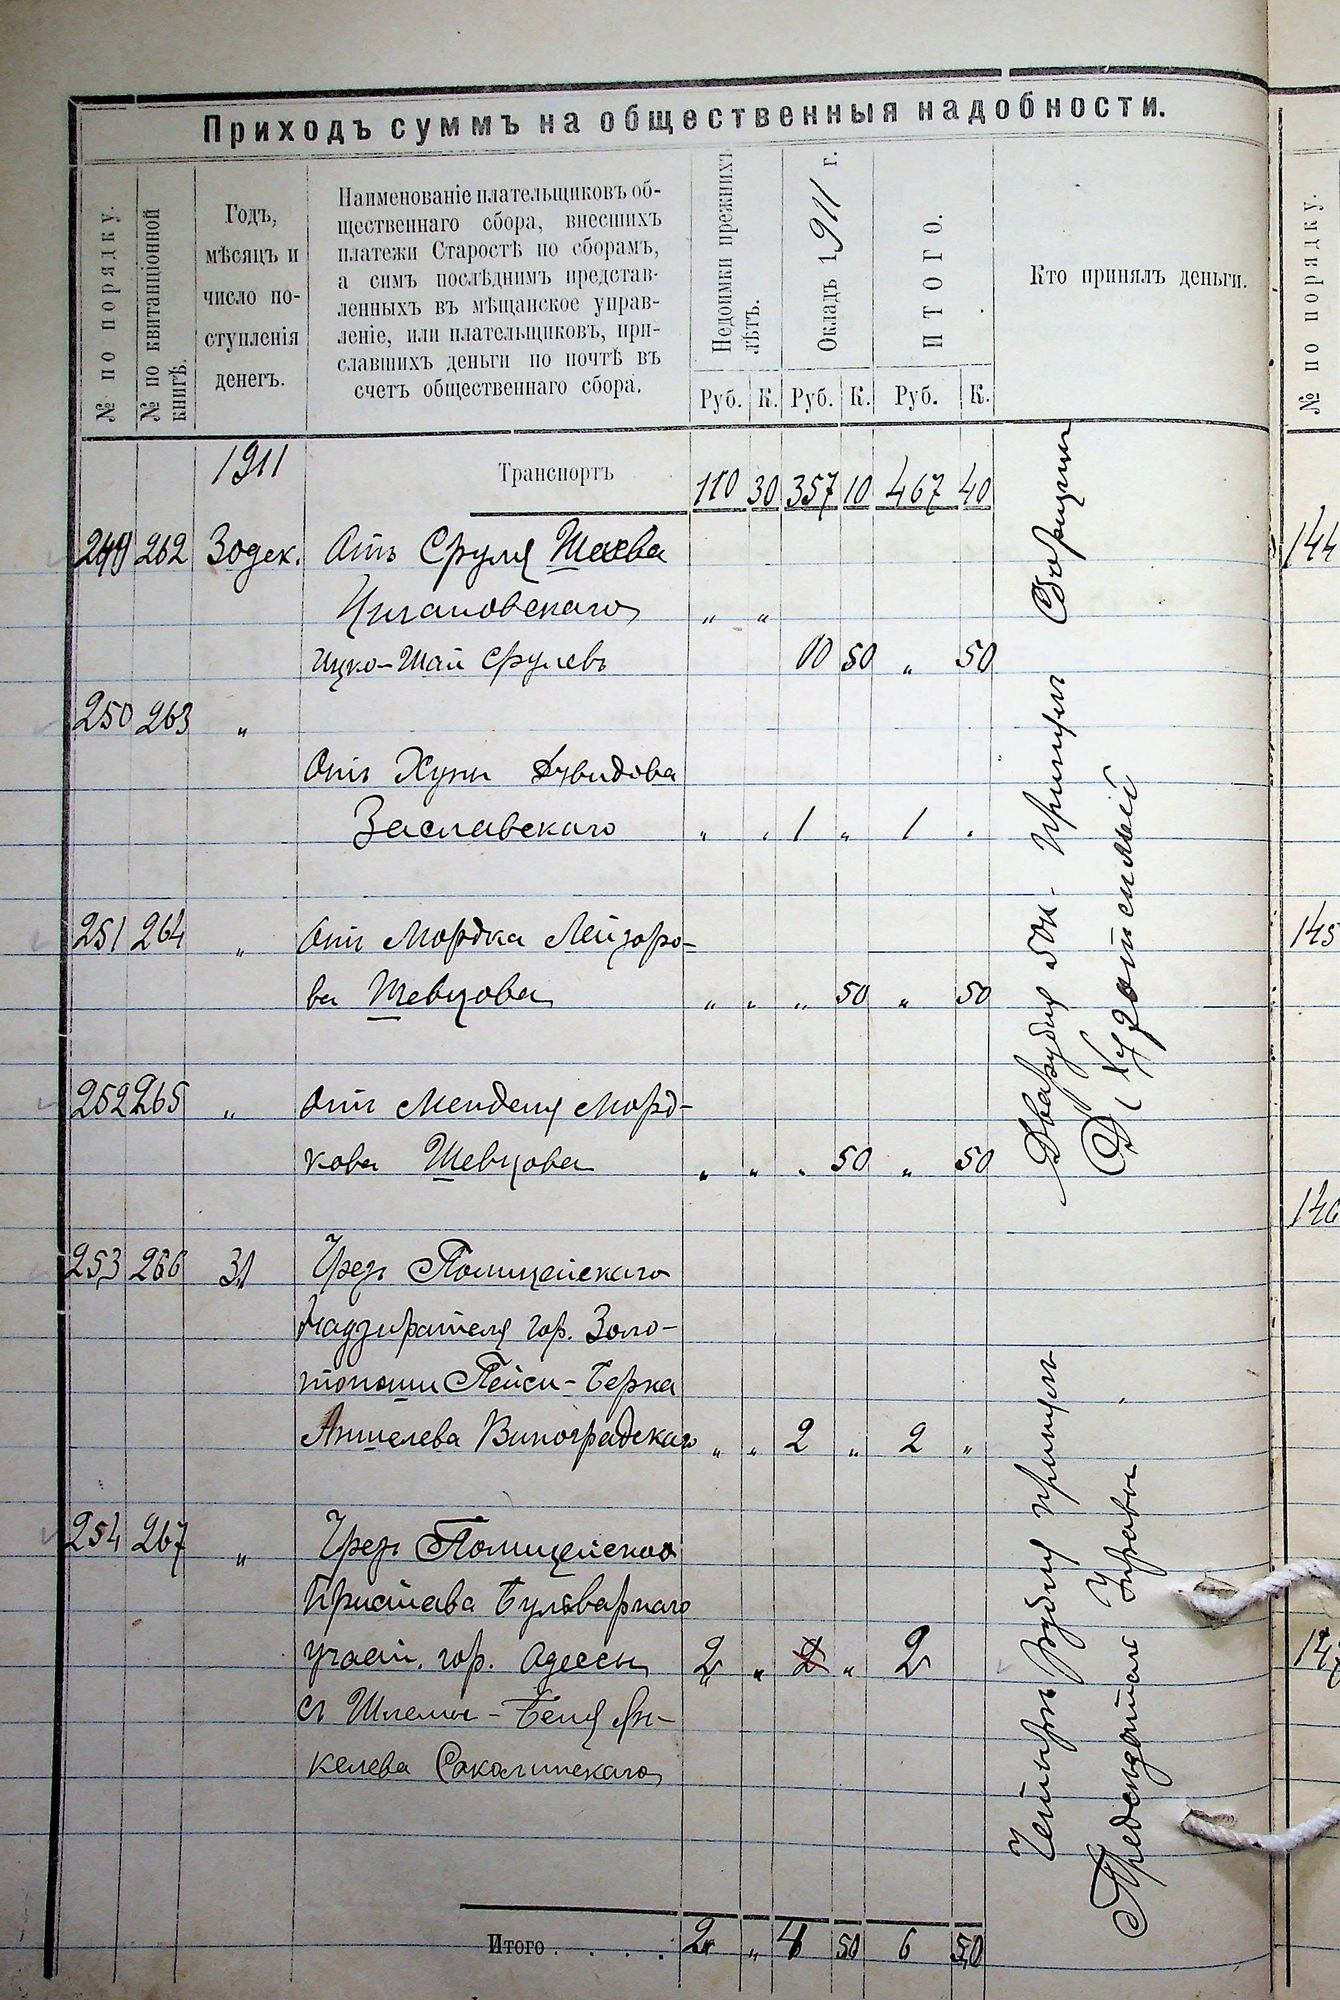 Приходъ суммъ на общественныя надобности.
№ по порядку.
№ по квитанціонной книгѣ.
Годъ,
мѣсяцъ и
число по-
ступленія
денегъ.
Наименованіе плательщиковъ об-
щественнаго сбора, внесшихъ
платежи Старостѣ по сборамъ,
а симъ послѣднимъ представ-
ленныхъ въ мѣщанское управ-
леніе, или плательщиковъ, при-
славшихъ деньги по почтѣ въ
счетъ общественнаго сбора.
Недоимки прежнихъ
лѣтъ.
Окладъ 1911 г.
ИТОГО.
Кто принялъ деньги.
№ по порядку.
Руб. К. Руб. К. Руб. К.
1911 Транспортъ 110 30 357 10 467 40
249 262 30 дек. Отъ Сруля
Ицко-Шаи Срулевъ 50 „ 50
250 263 „
Отъ Хуны Дувидова
Заславскаго „ „ 1 „ 1 „
251 264 „ Отъ Мордка Лейзоро-
ва Шевцова „ „ „ 50 „ 50
252 265 „ Отъ Менделя Морд-
кова Шевцова „ „ „ 50 „ 50
253 266 31 Чрезъ Полицейскаго
Надзирателя гор. Золо-
тоноши Пейси-Берка
Аншелева Виноградскаго „ „ 2 „ 2 „
254 267 „ Чрезъ Полицейскаго
Пристава Бульварнаго
участ. гор. Одессы 2 „ 2 „ 2
съ Шлемы-Беня Ян-
келева Сокалинскаго
Итого . . . . 2 „ 4 50 6 50
Два рубля 50 к. принялъ Сборщикъ
Четыре рубля принялъ
Председатель Управы
144
145
146
147